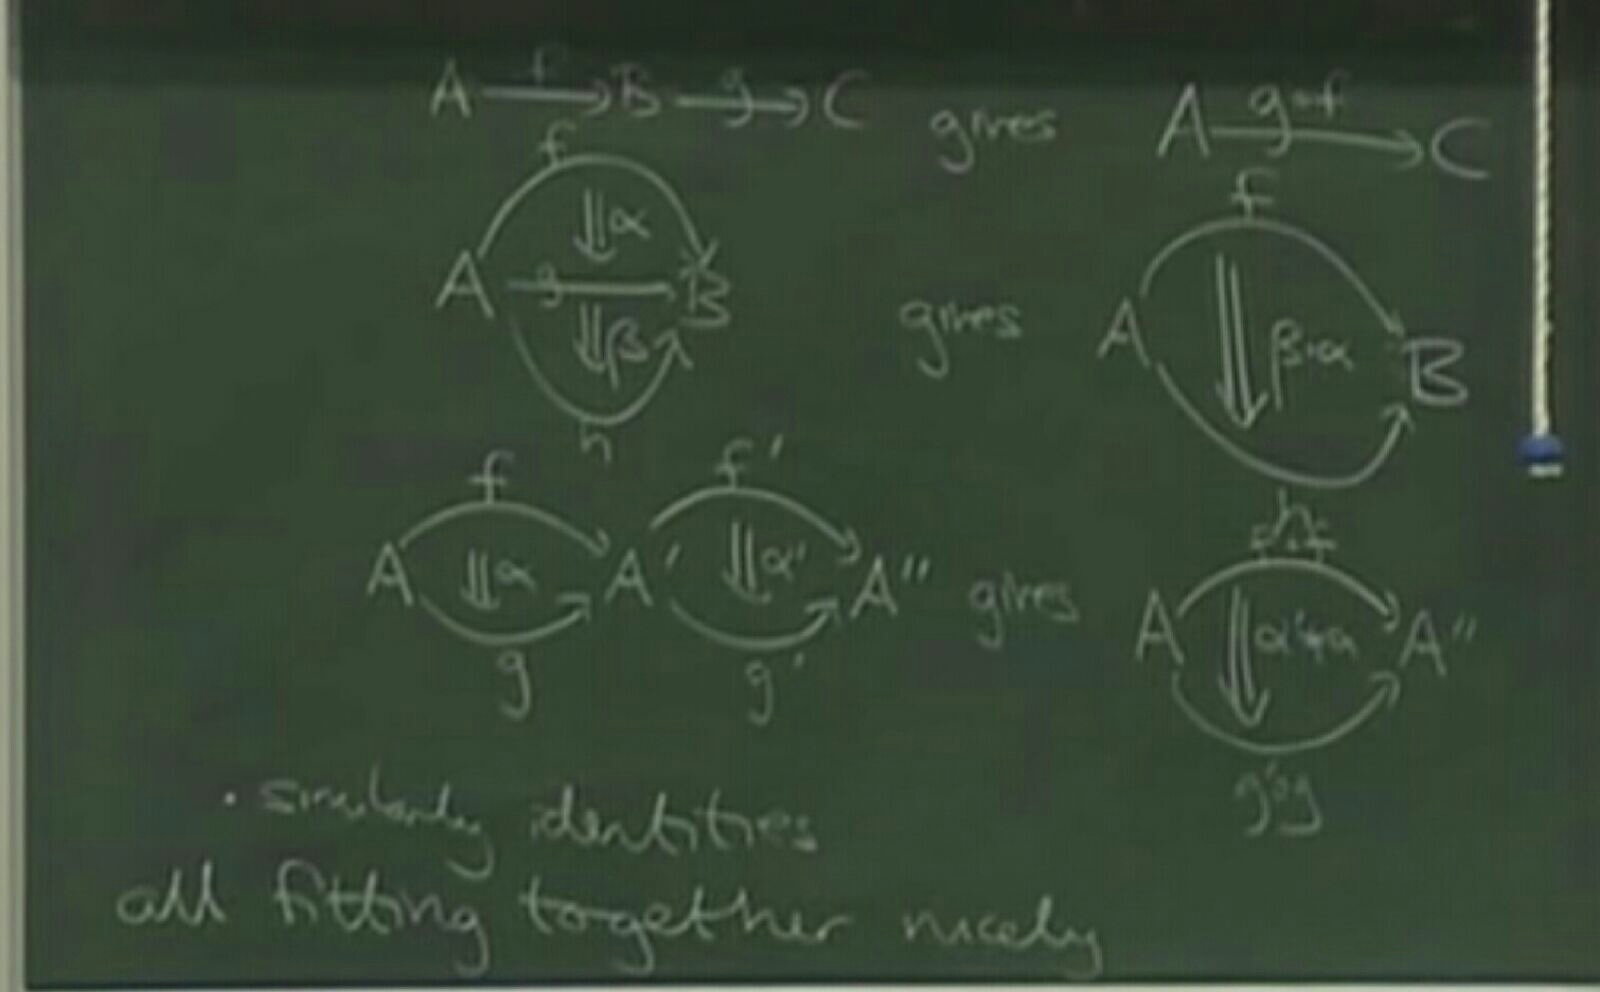 A f B g C gives A g∘f C
f
α
A g B
β
h
gives
f
A β∘α B
h
f f'
A α A' α' A'' gives
g g'
f'∘f
A α'*α A''
g'∘g
· similarly identities
all fitting together nicely